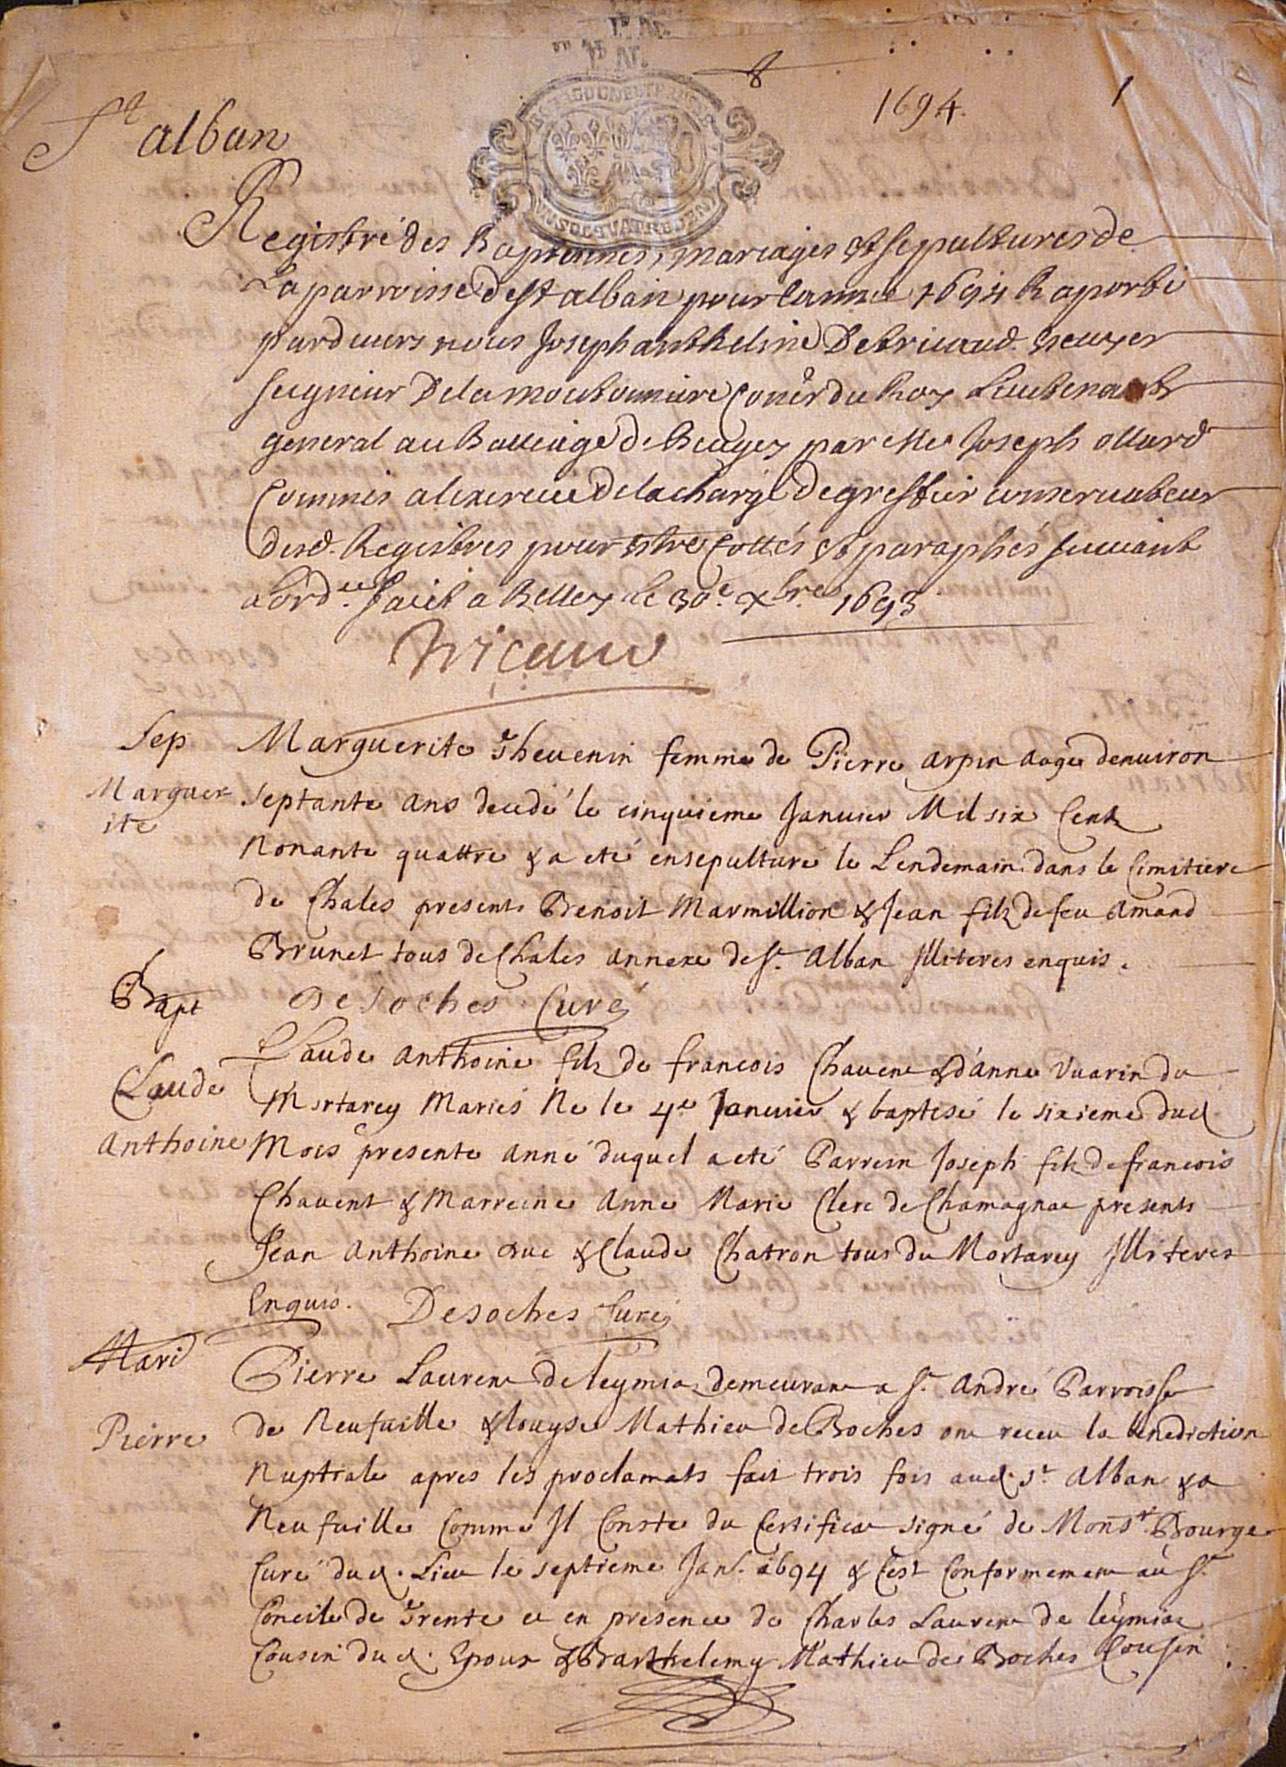 1694. 1
St alban
Registre des Baptemes, mariages et sepultures de
La parroisse de st alban pour lannée 1694 Raporté
pardevers nous Joseph anthelme Debricaud Escuyer
seigneur Dela moutonniere Coner du Roy Lieutenant
general au Balliage de Beugey par Me Joseph ollard
Commis alexercice Dela charge De greffier conservateur
desd. Registres pour estre Cottés et paraphés suivant
lord.ce faict a Belley le 30e xbre 1693
Bricaud
Sep Marguerite Thevenin femme de Pierre arpin aage denviron
Marguer septante ans decedé le cinquieme Janvier Mil six Cent
ite nonante quattre & a eté ensepulturé le Lendemain dans le Cimitiere
de Chales presents Benoit Marmillion & Jean filz de feu Amand
Brunet tous de Chales annexe de St. Alban Illiteres enquis.
Desoches Curé
Bapt Claude Anthoine filz de francois Chavent & d'anne Vuarin du
Claude Mortarey Mariés Ne le 4e Janvier & baptisé le sixieme dud
Anthoine Mois presente anné duquel a eté Parrein Joseph filz de francois
Chavent & Marreine Anne Marie Clerc de Chamagnat presents
Jean Anthoine & Claude Chatron tous du Mortarey Illiteres
Enquis. Desoches Curé
Mari Pierre Laurent de leymia demeurant a St. André Parroisse
Pierre de Neufuille & louyse Mathieu de Boches ont receu la benediction
Nuptiale apres les proclamats fait trois fois aud. St. Alban & a
Neufuille Comme Il Conste du Certificat signé de Monsr. Bourge
Curé dud. Lieu le septieme Janv. 1694 & Cest Conformement au St.
Concile de Trente et en presence de Charles Laurent de leymia
Cousin dud. Epoux & Barthelemy Mathieu de Boches Cousin